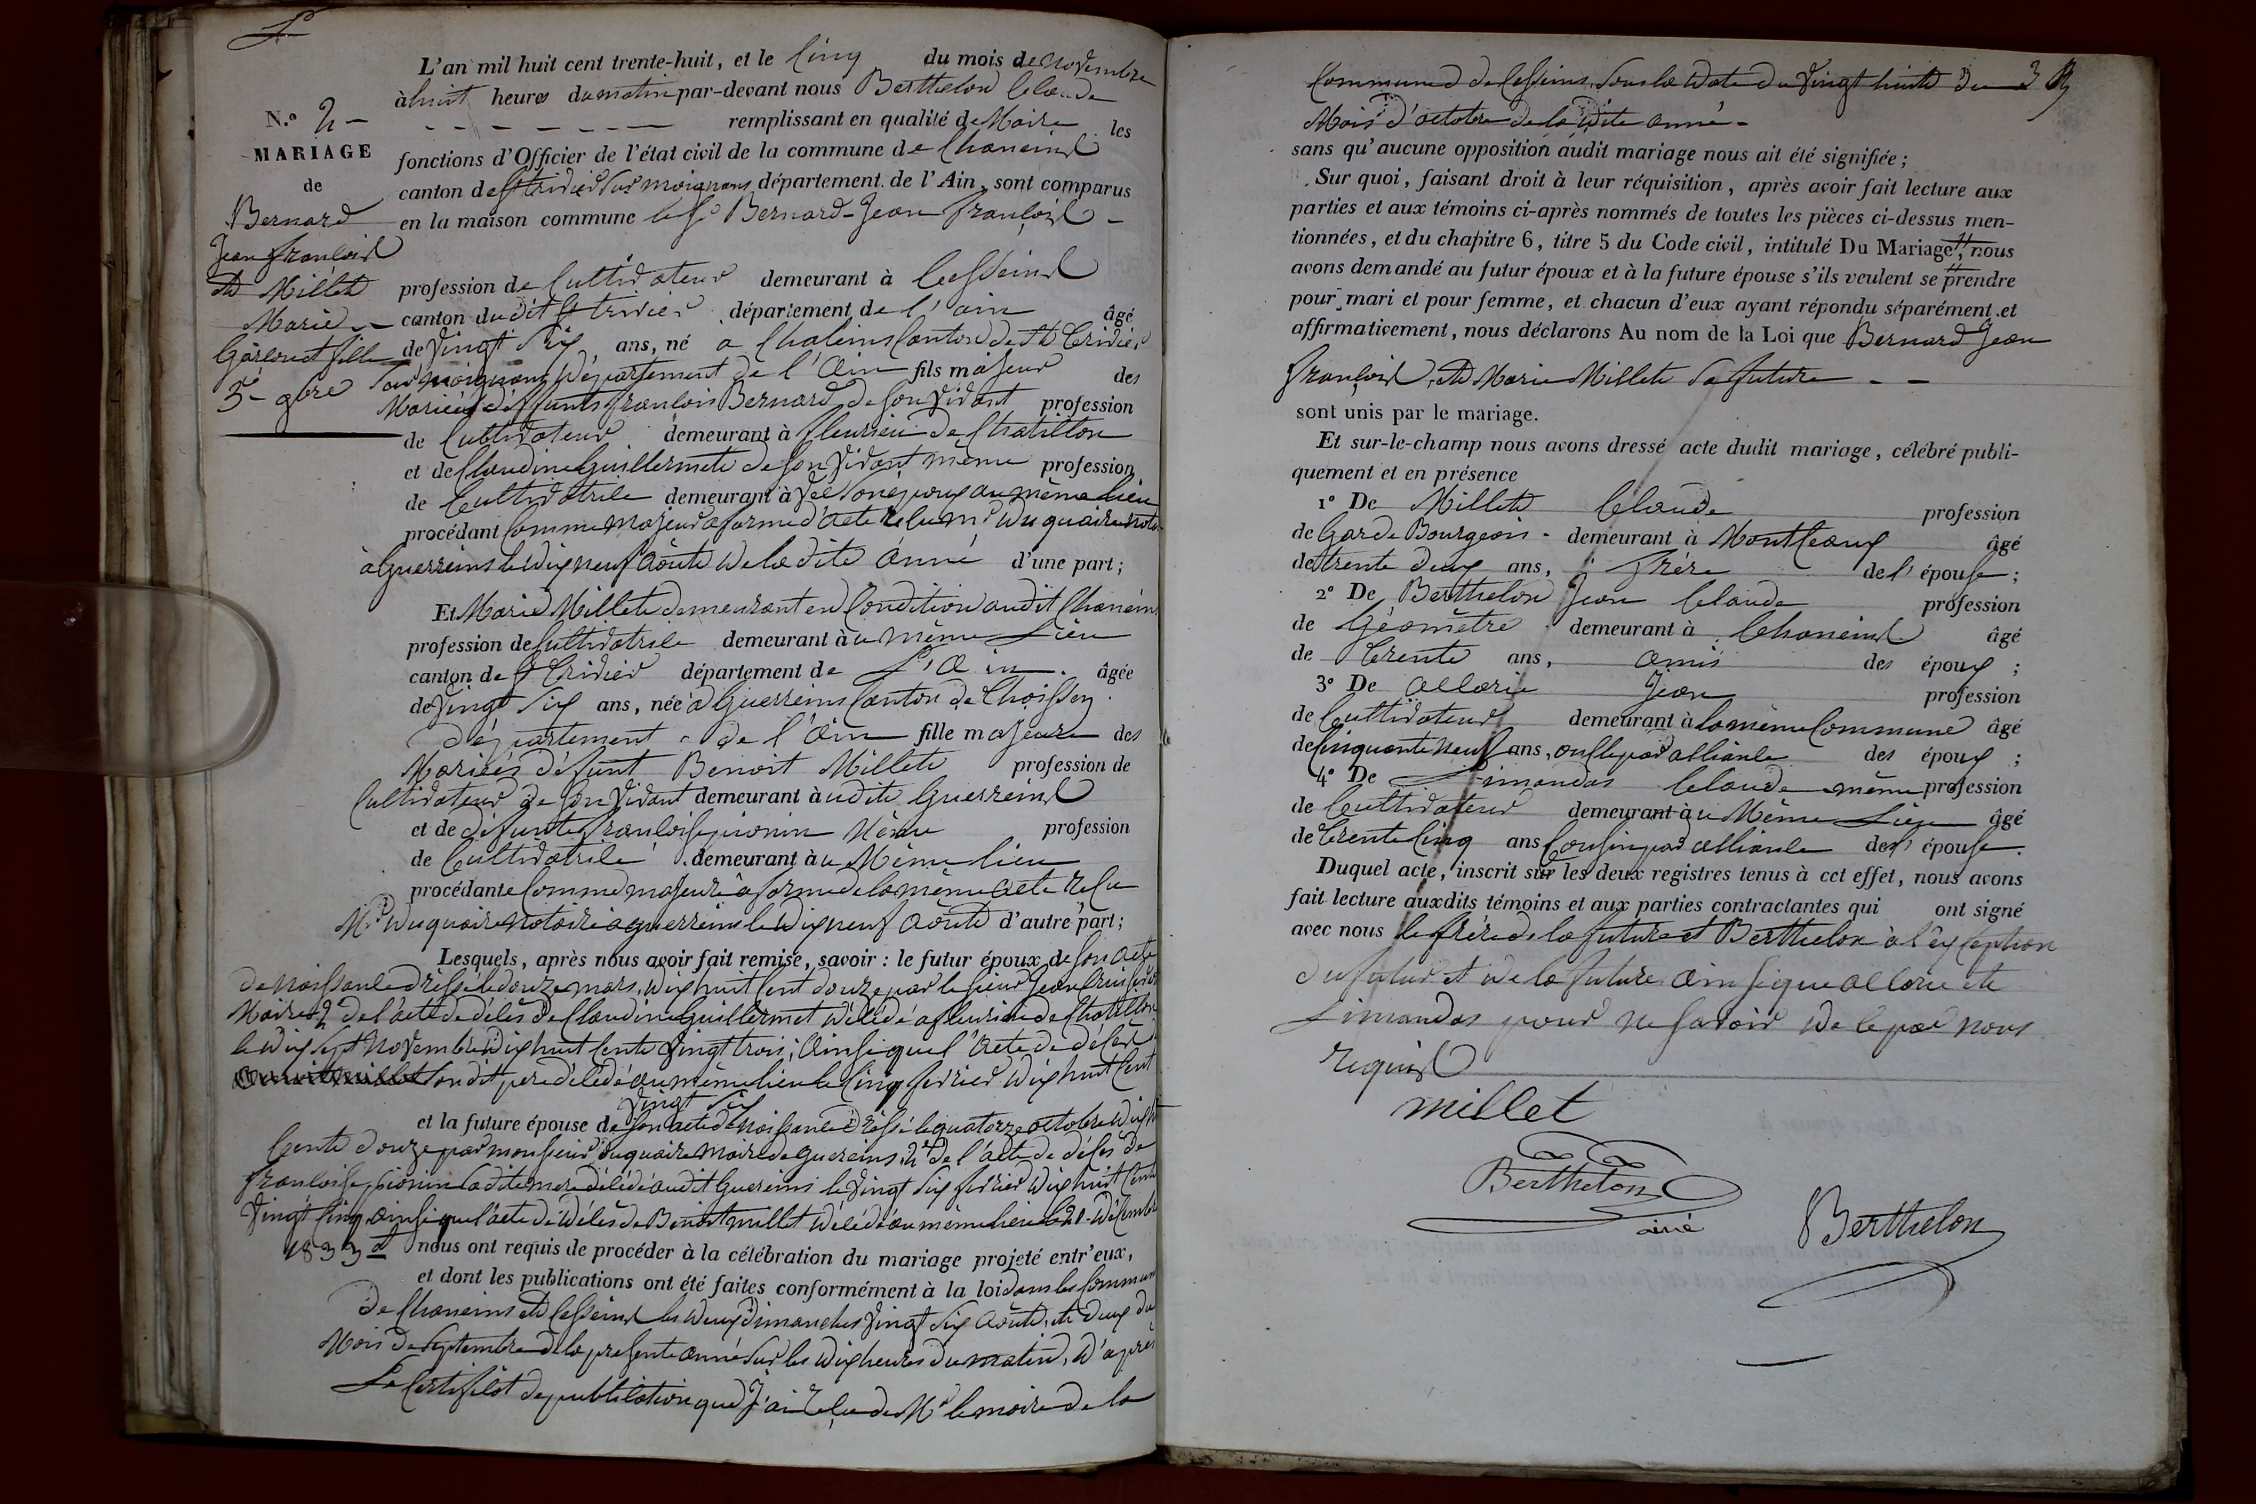 L'an mil huit cent trente-huit, et le Cinq du mois de novembre
à huit heures du matin par-devant nous Berthelon Claude
N.o 2 - remplissant en qualité de Maire les
MARIAGE
fonctions d'Officier de l'état civil de la commune de Chaneins
de
canton de St trivier Sur moignans département de l'Ain, sont comparus
Bernard
en la maison commune le Sr Bernard-Jean françois -
Jean françois
et Millete
profession de Cultivateur demeurant à Cesseins
Marie
canton dudit St trivier département de l'ain âgé
Garçon et fille
de vingt Six ans, né a Chaleins Canton de St Trivier
5e 9bre
Sur moignans département de l'Ain fils majeur des
Mariées déffunts françois Bernard, de Son vivant profession
de Cultivateur demeurant à fleurieu de Chatillon
et de Claudine Guillermete de Son vivant même profession
de Cultivatrice demeurant à son époux au même lieu
procédant Comme Majeur a forme d'acte reçu Mr Duquaire
à Guerreins le dix neuf Aôute de la dite année d'une part;
Et Marie Millete demeurant en Condition audit Chaneins
profession de Cultivatrice demeurant à u même Lieu
canton de St Trivier département de L'Ain âgée
de vingt Six ans, née à Guerreins Canton de Thoissey
département de l'Ain fille majeure des
Mariées défunt Benoit Millete profession de
Cultivateur de Son vivant demeurant à udite Guerreins
et de défunte françoise pionin même profession
de Cultivatrice demeurant à u Même lieu
procédante Comme majeure a forme de la même acte reçu
Mr Duquaire Notaire a guerreins le dix neuf Aôute d'autre part;
Lesquels, après nous avoir fait remise, savoir: le futur époux, de Son acte
de naissance dréssé le douze mars, dix huit Cent douze par le Sieur Jean
Maire 2 de l'acte de décès de Claudine Guillermet décédé a fleurieu de Chatillon
le dix Sept Novembre dix huit Cente vingt trois, ainsi que l'acte de décès
Sondit pere décédé au même lieu le Cinq fevrier dix huit Cent
vingt Six
et la future épouse de Son acte de naissance dréssé le quatorze octobre dix huit
Cente douze par monsieur duquaire maire de guereins, 2e de l'acte de décès de
françoise pionin Sadite mere décédé audit Guereins le vingt Six fevrier dix huit Cente
vingt Cinq, ainsi que l'acte de décès de Benoit millet décédé au même lieu le 21 décembre
1833 nous ont requis de procéder à la célébration du mariage projeté entr'eux,
et dont les publications ont été faites conformément à la loi dans les Commune
de Chaneins et Cesseins les deux dimanches vingt Six aôute, et deux du
Mois de Septembre de la presente année Sur les dix heures du matin, d'aprés
Le Certificat de publication que J'ai reçu de Mr le maire de la
Commune de Cesseins, Sous la date du vingt huite du
Mois d'octobre de la dite année -
sans qu'aucune opposition audit mariage nous ait été signifiée;
Sur quoi, faisant droit à leur réquisition, après avoir fait lecture aux
parties et aux témoins ci-après nommés de toutes les pièces ci-dessus men-
tionnées, et du chapitre 6, titre 5 du Code civil, intitulé Du Mariage, nous
avons demandé au futur époux et à la future épouse s'ils veulent se prendre
pour mari et pour femme, et chacun d'eux ayant répondu séparément et
affirmativement, nous déclarons Au nom de la Loi que Bernard Jean
françois, et Marie Millete Sa future - -
sont unis par le mariage.
Et sur-le-champ nous avons dressé acte dudit mariage, célébré publi-
quement et en présence
1o De Millete Claude profession
de Garde Bourgeois - demeurant à Montceaux âgé
de trente deux ans, frére de l'épouse;
2o De Berthelon Jean Claude profession
de Géomètre demeurant à Chaneins âgé
de Trente ans, amis des époux;
3o De allarie Jean profession
de Cultivateur demeurant à la même Commune âgé
de Cinquante neuf ans, oncle par alliance des époux;
4o De Limandas Claude même profession
de Cultivateur demeurant à u Même Lieu âgé
de Trente Cinq ans Cousin par alliance de l'épouse.
Duquel acte, inscrit sur les deux registres tenus à cet effet, nous avons
fait lecture auxdits témoins et aux parties contractantes qui ont signé
avec nous le frére de la future et Berthelon à l'éxception
du futur et de la future, ainsi que allarie et
Limandas pour ne Savoir de ce par nous
requis
millet
Berthelon
ainé
Berthelon